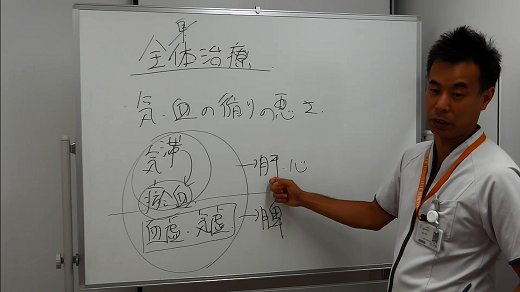 全体治療
・気・血の循りの悪さ
気滞 → 肝・心
瘀血
血虚・気虚 → 脾